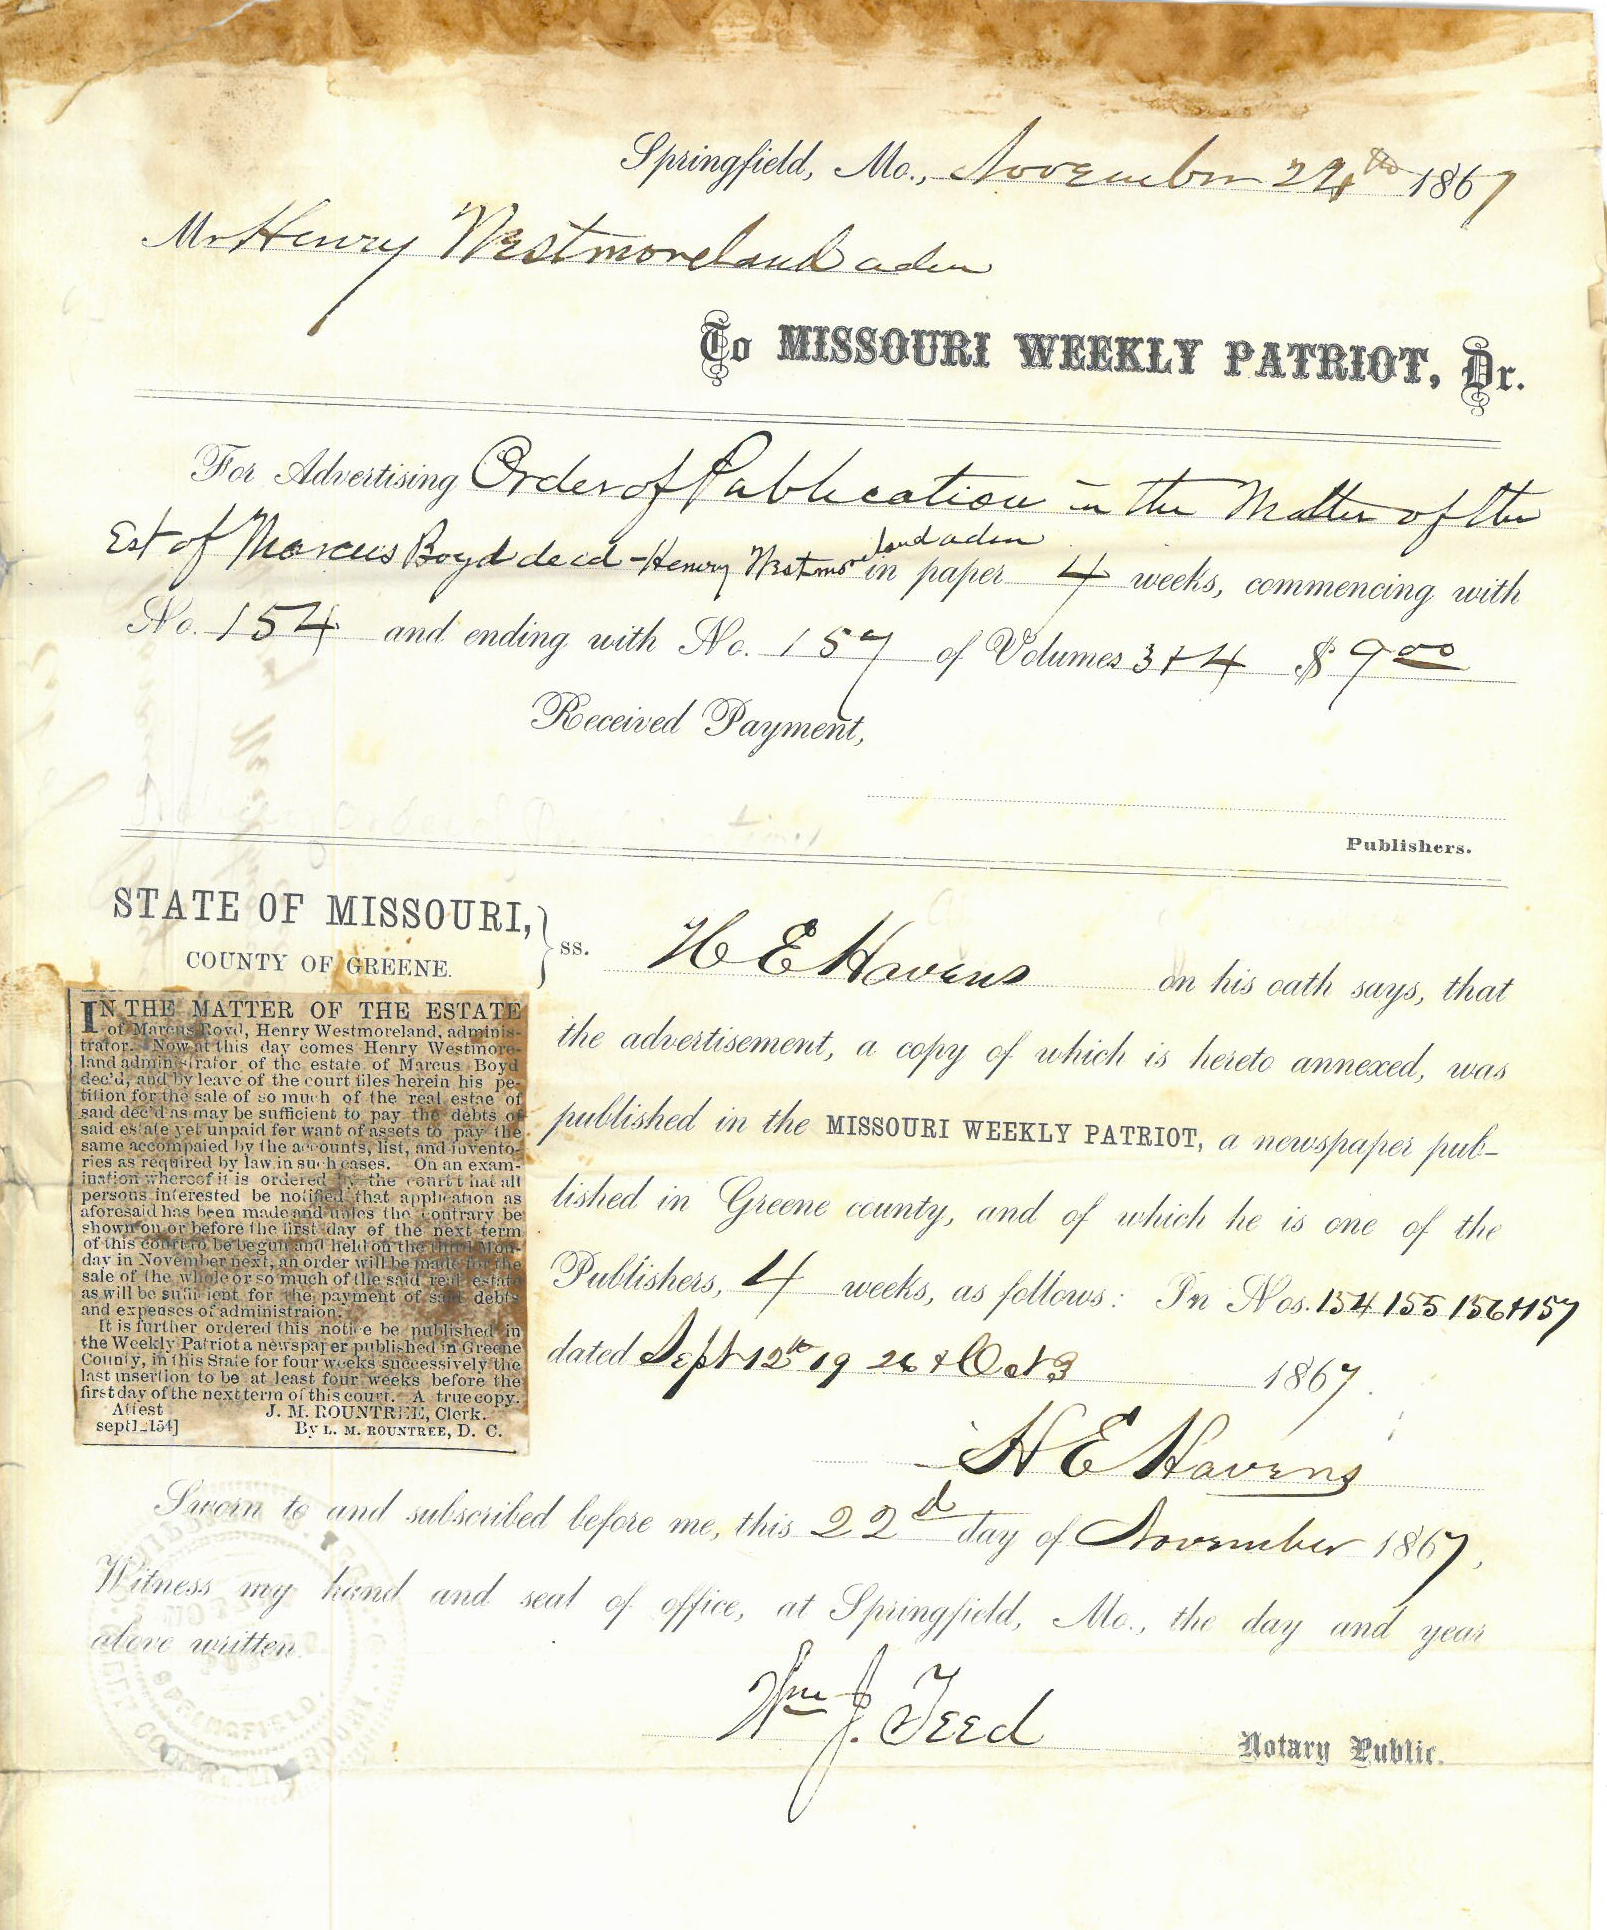 Springfield, Mo., November 24th 1867
Mr Henry Westmoreland adm
To MISSOURI WEEKLY PATRIOT, Dr.
For Advertising Order of Publication in the Matter of the
Est of Marcus Boyd decd - Henry Westmoreland adm in paper 4 weeks, commencing with
No. 154 and ending with No. 157 of Volumes 3 & 4 $ 9 00
Received Payment,
Publishers.
STATE OF MISSOURI, } ss.
COUNTY OF GREENE.
H E Havens on his oath says, that
the advertisement, a copy of which is hereto annexed, was
published in the MISSOURI WEEKLY PATRIOT, a newspaper pub-
lished in Greene county, and of which he is one of the
Publishers, 4 weeks, as follows: In Nos. 154 155 156 & 157
dated Sept 12th 19 26 & Oct 3 1867.
H E Havens
IN THE MATTER OF THE ESTATE
of Marcus Boyd, Henry Westmoreland, adminis-
trator. Now at this day comes Henry Westmore-
land administrator of the estate of Marcus Boyd
dec'd, and by leave of the court files herein his pe-
tition for the sale of so much of the real estae of
said dec'd as may be sufficient to pay the debts of
said estate yet unpaid for want of assets to pay the
same accompaied by the accounts, list, and invento-
ries as required by law in such cases. On an exam-
ination whereof it is ordered by the court t hat all
persons interested be notified that application as
aforesaid has been made and unles the contrary be
shown on or before the first day of the next term
of this court to be begun and held on the third Mon-
day in November next, an order will be made for the
sale of the whole or so much of the said real estate
as will be sufficient for the payment of said debts
and expenses of administraion.
It is further ordered this notice be published in
the Weekly Patriot a newspaper published in Greene
County, in this State for four weeks successively the
last insertion to be at least four weeks before the
first day of the next term of this court. A true copy.
Attest J. M. ROUNTREE, Clerk.
sept1_154] By L. M. ROUNTREE, D. C.
Sworn to and subscribed before me, this 22d day of November 1867.
Witness my hand and seal of office, at Springfield, Mo., the day and year
above written.
Wm J. Teed
Notary Public.
SPRINGFIELD.